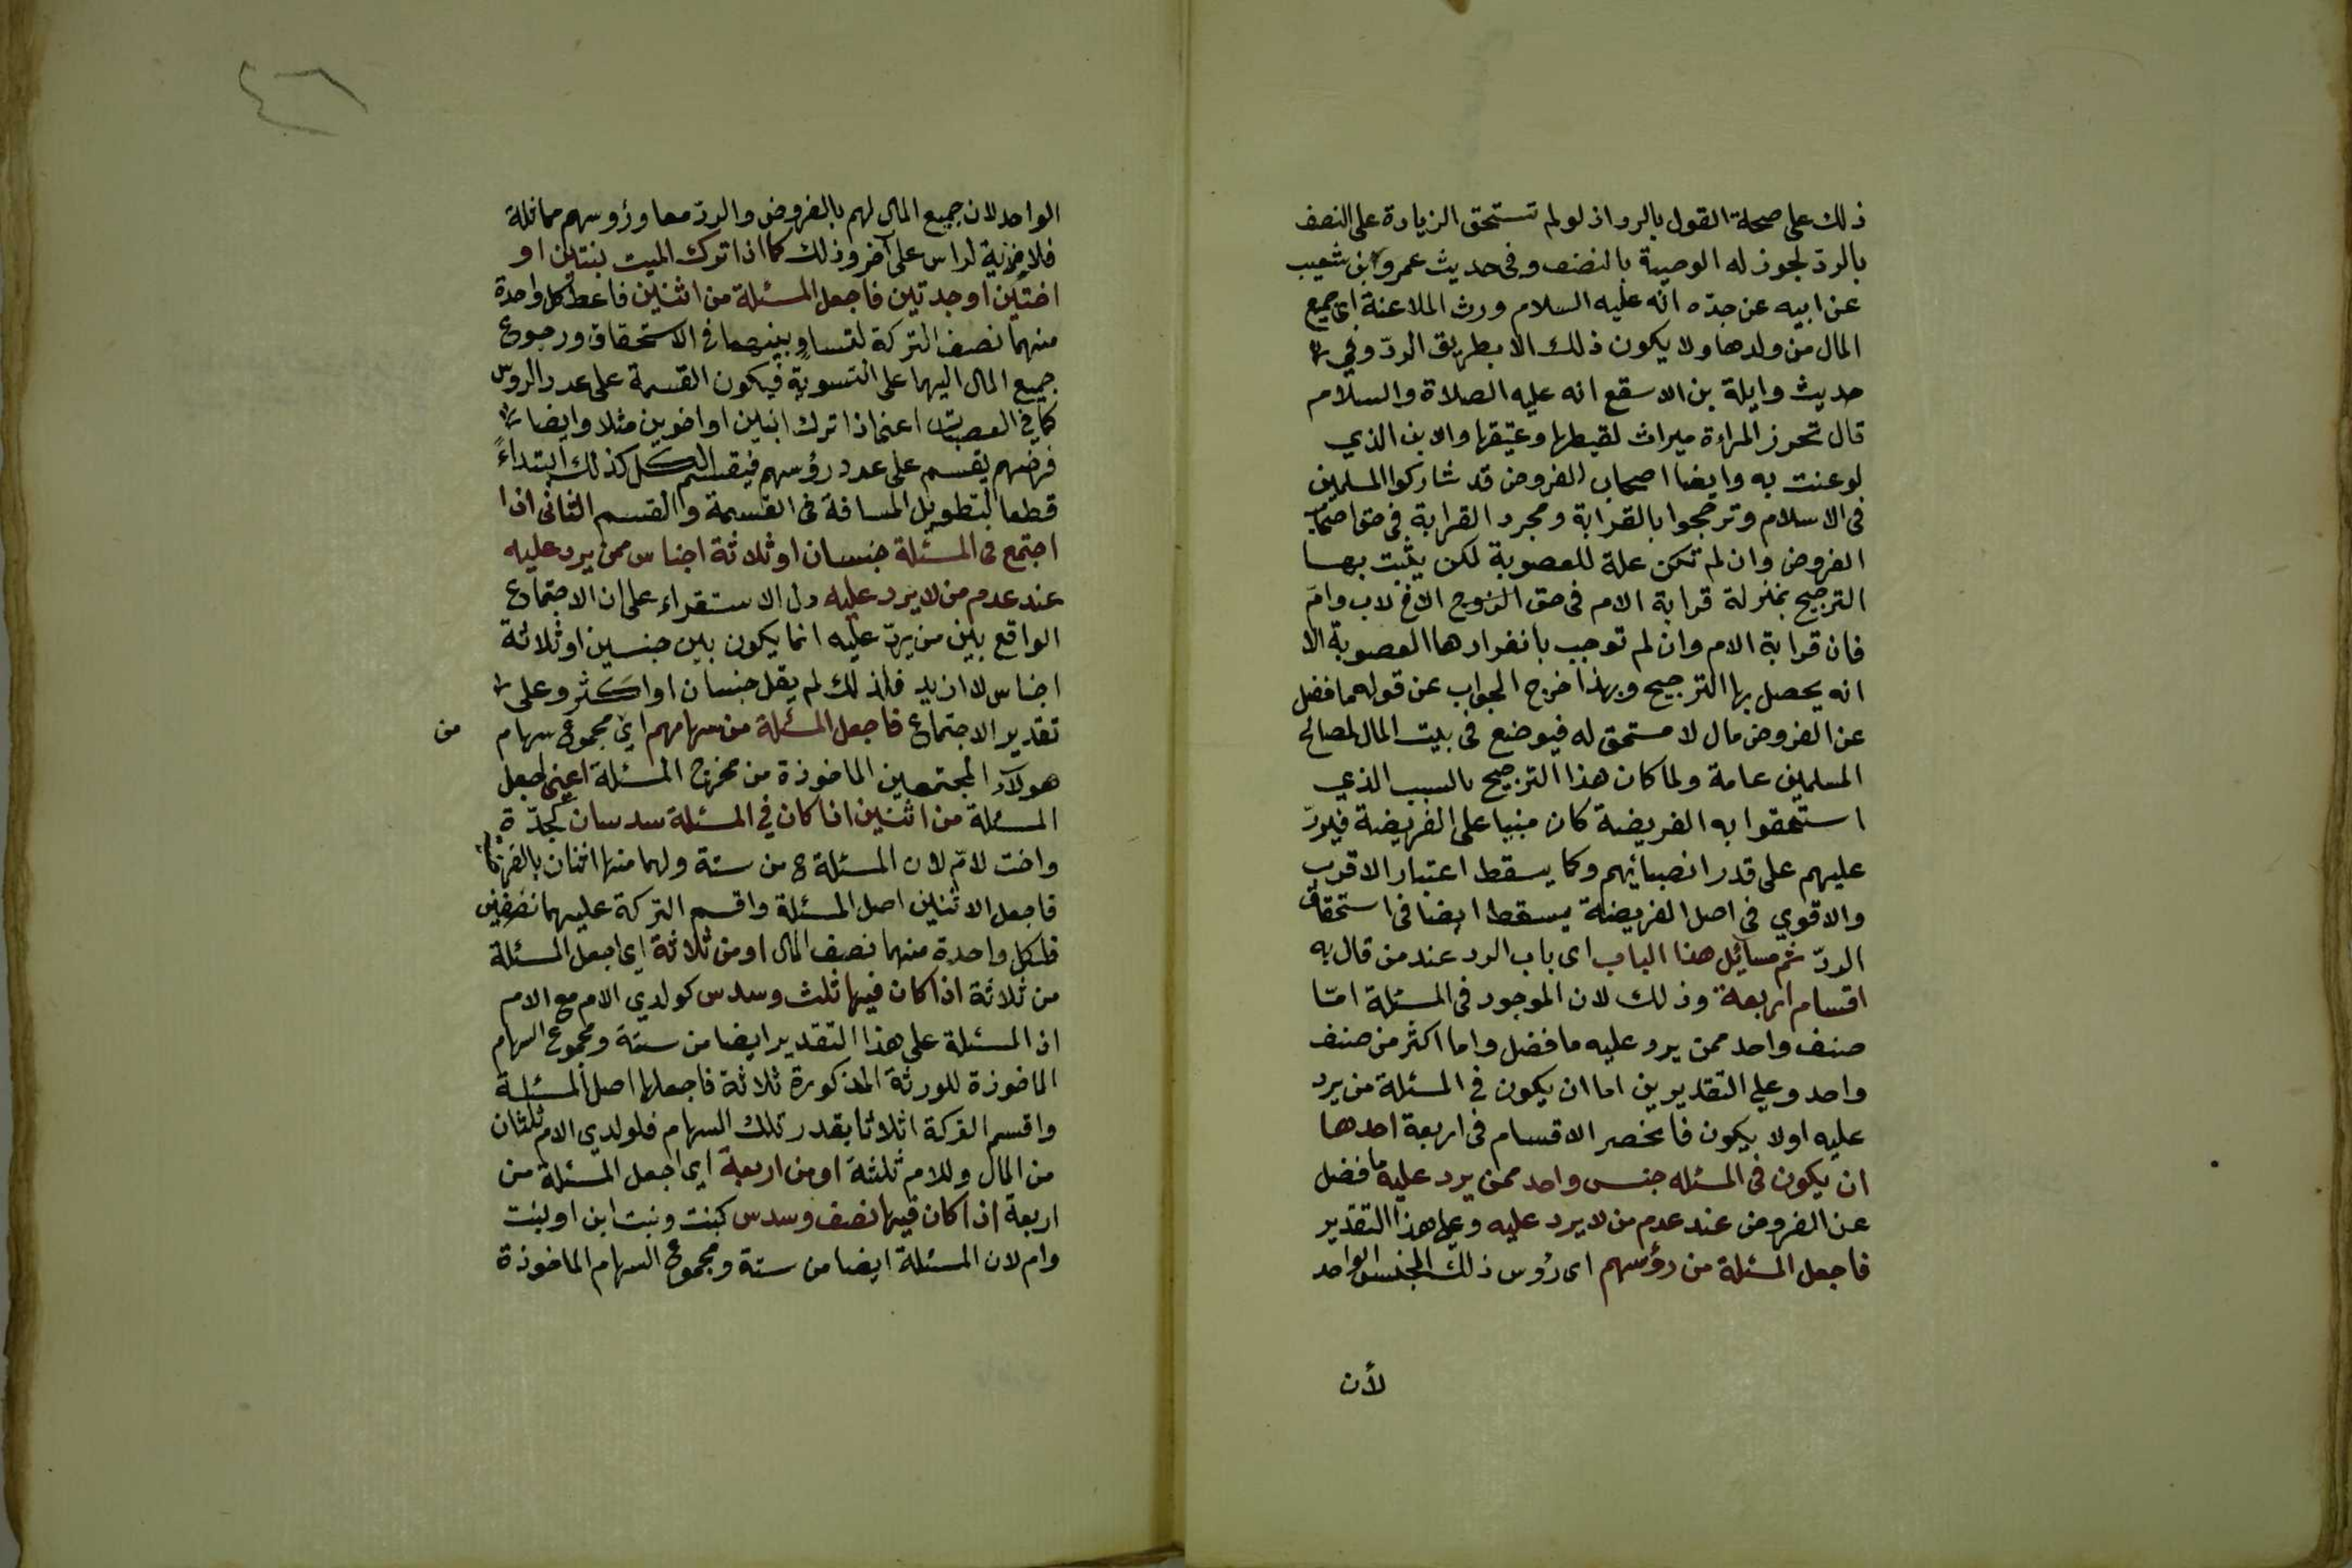 ذلك على صحة القول بالرد اذ لو لم تستحق الزيادة على النصف
بالردّ لجوز له الوصية بالنصف وفى حديث عمرو بن شعيب
عن ابيه عن جدّه انّه عليه السلام ورث الملاعنة اى جميع
المال من ولدها ولا يكون ذلك الا بطريق الردّ وفي
حديث وايلة بن الاسقع انه عليه الصلاة والسلام
قال تحوز المراءة ميراث لقيطها وعتيقها والابن الذي
لوعنت به وايضا اصحاب الفروض قد شاركوا المسلمين
فى الاسلام وترجحوا بالقرابة ومجرد القرابة فى حق اصحاب
الفروض وان لم تكن علة للعصوبة لكن يثبت بها
الترجيح بمنزلة قرابة الام فى حق الزوج الاخ لاب وامّ
فان قرابة الام وان لم توجب بانفرادها العصوبة الا
انه يحصل بها الترجيح وبهذا خرج الجواب عن قوله ما فضل
عن الفروض مال لا مستحق له فيوضع فى بيت المال لمصالح
المسلمين عامة ولما كان هذا الترجيح بالسبب الذي
استحقوا به الفريضة كان مبنيا على الفريضة فيردّ
عليهم على قدر انصبائهم وكما يسقط اعتبار الاقرب
والاقوي فى اصل الفريضة يسقط ايضا فى استحقاق
الردّ ثم مسائل هذا الباب اى باب الرد عند من قال به
اقسام اربعة وذلك لان الموجود فى المسئلة امّا
صنف واحد ممن يرد عليه ما فضل واما اكثر من صنف
واحد وعلي التقديرين اما ان يكون فى المسئلة من يرد
عليه اولا يكون فانحصر الاقسام فى اربعة احدها
ان يكون فى المسئله جنس واحد ممن يرد عليه ما فضل
عن الفروض عند عدم من لا يرد عليه وعلى هذا التقدير
فاجعل المسئلة من رؤسهم اى رؤس ذلك الجنس الواحد
لأن
٤٦
الواحد لان جميع المال لهم بالفروض والردّ معا ورؤسهم مماثلة
فلا مزية لراس على آخر وذلك كما اذا ترك الميت بنتين او
اختين او جدتين فاجعل المسئلة من اثنين فاعط كل واحدة
منهما نصف التركة لتساو بينهما فى الاستحقاق ورجوع
جميع المال اليهما على التسوية فيكون القسمة على عدد الروس
كما في العصبات اعنى اذا ترك ابنين او اخوين مثلا وايضا
فرضهم يقسم على عدد رؤسهم فيقسم الكل كذلك ابتداءً
قطعا لتطويل المسافة فى القسمة والقسم الثانى اذا
اجتمع فى المسئلة جنسان او ثلاثة اجناس ممن يرد عليه
عند عدم من لا يرد عليه دل الاستقراء على ان الاجتماع
الواقع بين من يردّ عليه انما يكون بين جنسين او ثلاثة
اجناس لا ازيد فلذلك لم يقل جنسان او اكثر وعلى
تقدير الاجتماع فاجعل المسئلة من سهامهم اي مجموع سهام من
هولآء المجتمعين الماخوذة من مخرج المسئلة اعنى اجعل
المسئلة من اثنين اذا كان في المسئلة سدسان كجدّة
واخت لامّ لان المسئلة ح من ستة ولهما منها اثنان بالفرض
فاجعل الاثنين اصل المسئلة واقسم التركة عليهما نصفين
فلكل واحدة منهما نصف المال او من ثلاثة اي اجعل المسئلة
من ثلاثة اذا كان فيها ثلث وسدس كولدي الام مع الام
اذ المسئلة على هذا التقدير ايضا من ستة ومجموع السهام
الماخوذة للورثة المذكورة ثلاثة فاجعلها اصل المسئلة
واقسم التركة اثلاثا بقدر تلك السهام فلولدي الام ثلثان
من المال وللام ثلثة او من اربعة اي اجعل المسئلة من
اربعة اذا كان فيها نصف وسدس كبنت وبنت ابن او بنت
وام لان المسئلة ايضا من ستة ومجموع السهام الماخوذة